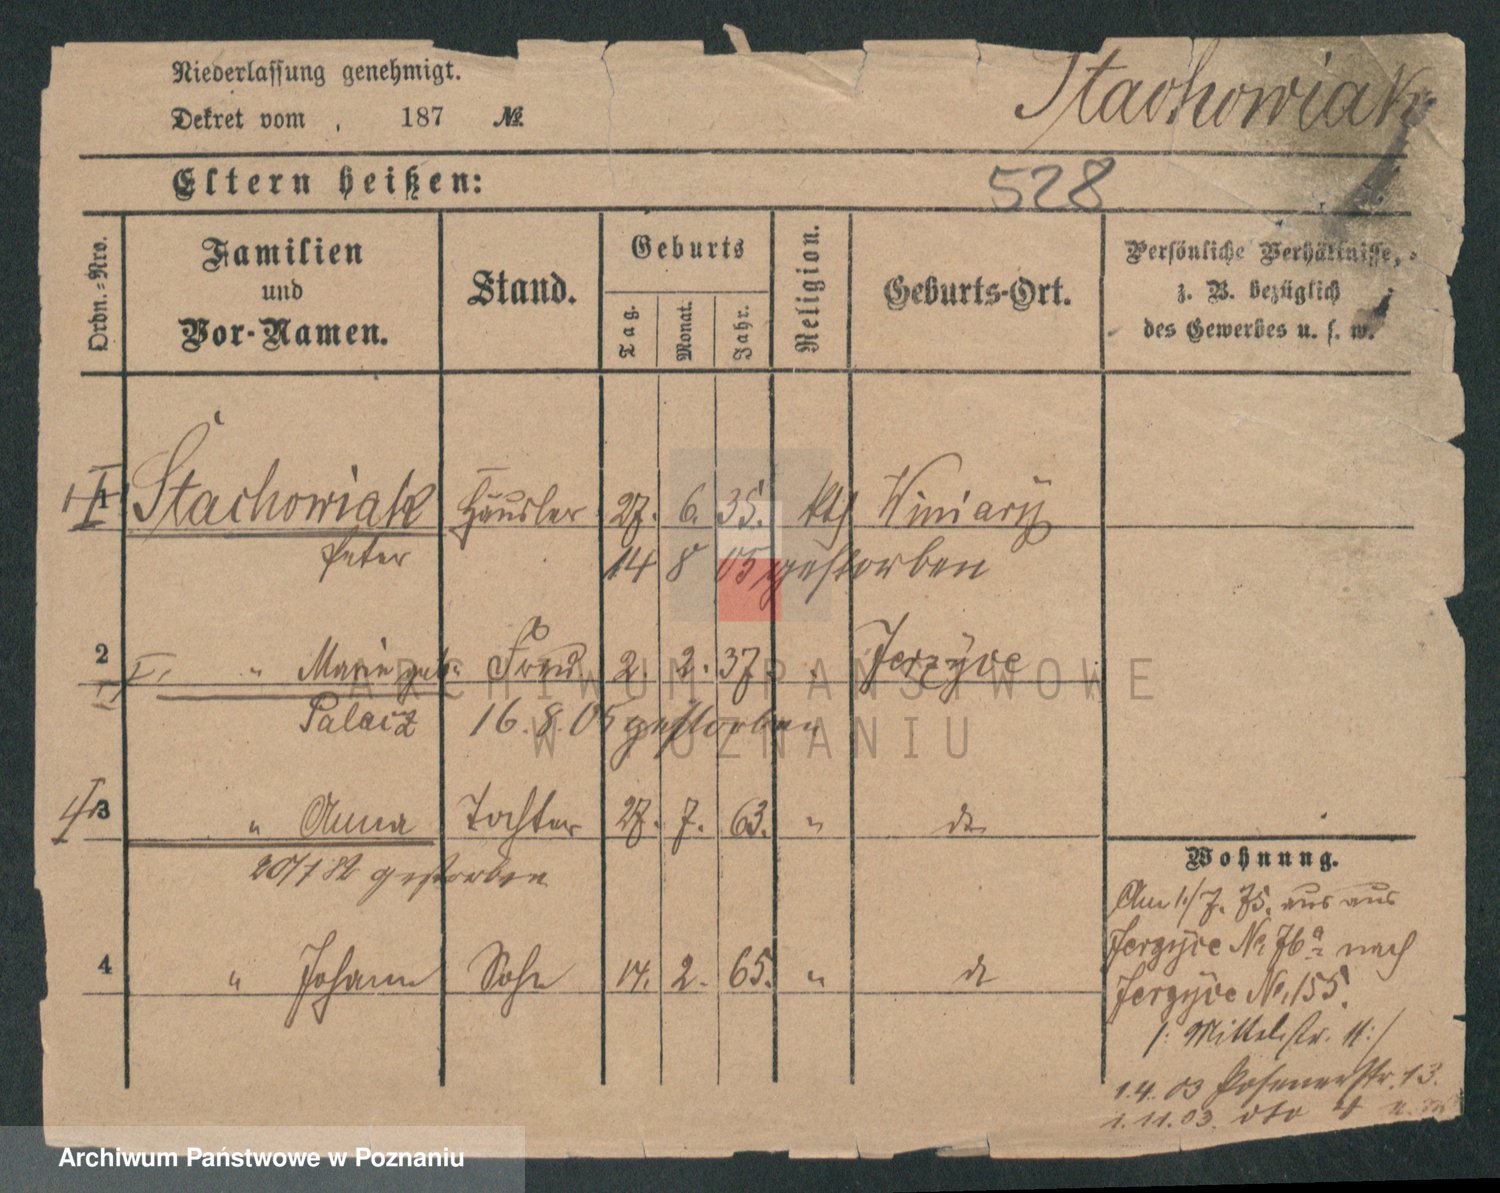 Niederlassung genehmigt.
Dekret vom , 187 №
Stachowiak
Eltern heißen:
528
Ordn.-Nro.
Familien
und
Vor-Namen.
Stand.
Geburts
Tag.
Monat.
Jahr.
Religion.
Geburts-Ort.
Persönliche Verhältnisse,
z. B. bezüglich
des Gewerbes u. s. w.
1 Stachowiak Häusler 27. 6. 35. kth Winiary
Peter 14 8 05 gestorben
2 " Marie geb. Frau 2. 2. 37 " Jerzyce
Palacz 16. 8. 05 gestorben
3 " Anna Tochter 27. 7. 63. " do
20/7 82 gestorben
4 " Johann Sohn 14. 2. 65. " do
Wohnung.
Am 1./7. 75. aus aus
Jerzyce No. 76a nach
Jerzyce No. 155.
/: Mittelstr. 11 :/
1.4.03 Posenerstr. 13.
1.11.03. dto 4
ARCHIWUM PAŃSTWOWE
W POZNANIU
Archiwum Państwowe w Poznaniu